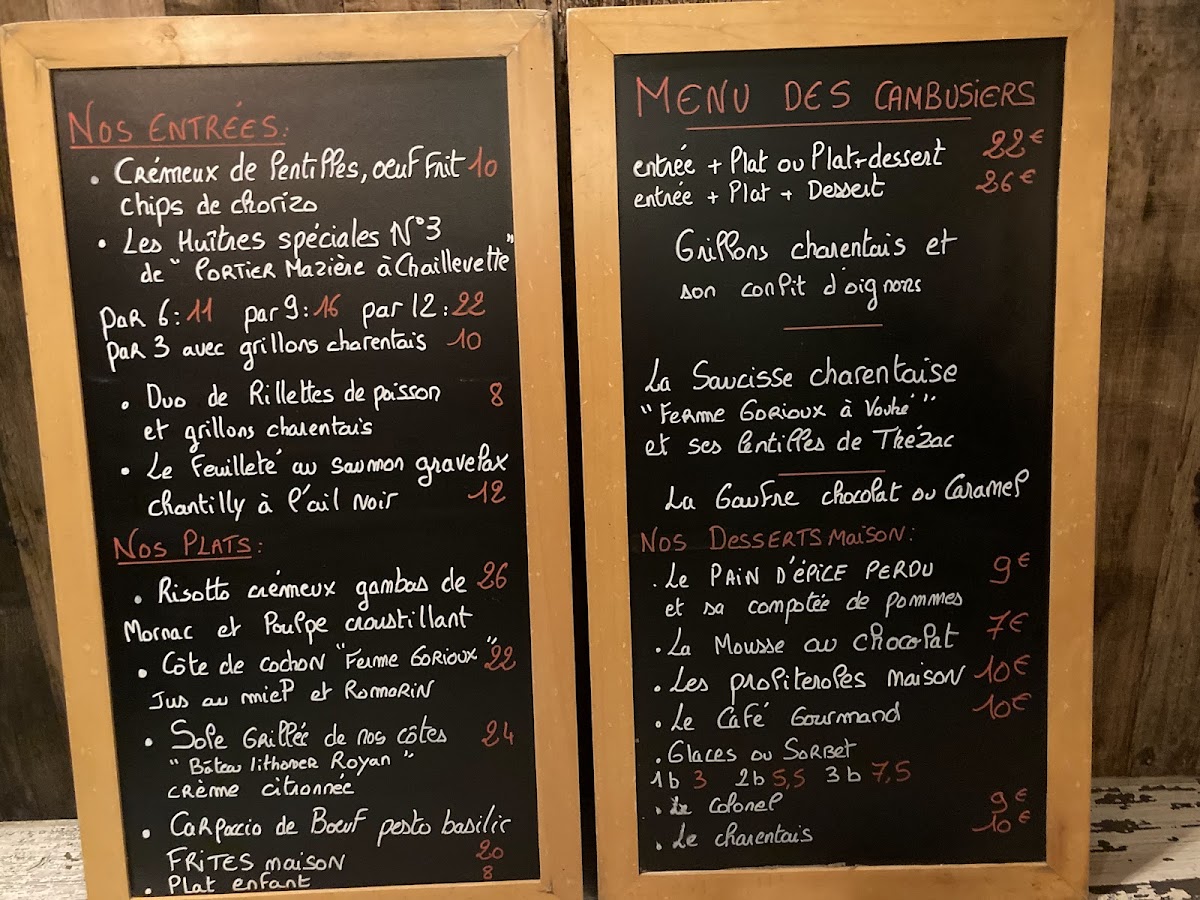 Nos Entrées:
. Crémeux de lentilles, oeuf frit 10
chips de chorizo
• Les Huîtres spéciales N°3
de "Portier Mazière à Chaillevette"
par 6: 11 par 9: 16 par 12: 22
par 3 avec grillons charentais 10
• Duo de Rillettes de poisson 8
et grillons charentais
• Le Feuilleté au saumon gravelax
chantilly à l'ail noir 12
Nos Plats:
• Risotto crémeux gambas de 26
Mornac et Poulpe croustillant
• Côte de cochon "Ferme Gorioux" 22
Jus au miel et Romarin
• Sole Grillée de nos côtes 24
"Bâteau lithoner Royan"
crème citronnée
• Carpaccio de Boeuf pesto basilic
FRITES maison 20
• Plat enfant 8
Menu des Cambusiers
entrée + Plat ou Plat+dessert 22€
entrée + Plat + Dessert 26€
Grillons charentais et
son confit d'oignons
La Saucisse charentaise
"Ferme Gorioux à Vouhé"
et ses lentilles de Thézac
La Gaufre chocolat ou Caramel
Nos Desserts maison:
. Le PAIN D'ÉPICE PERDU 9€
et sa compotée de pommes
. La Mousse au chocolat 7€
. Les profiteroles maison 10€
. Le Café Gourmand 10€
. Glaces ou Sorbet
1b 3 2b 5,5 3b 7,5
. Le Colonel 9€
. Le charentais 10€